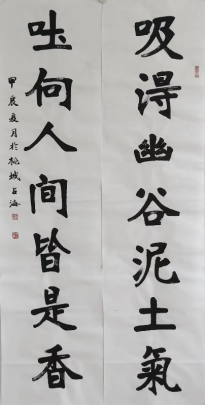 吸得幽谷泥土氣
吐向人间皆是香
甲辰夏月於桃城占海